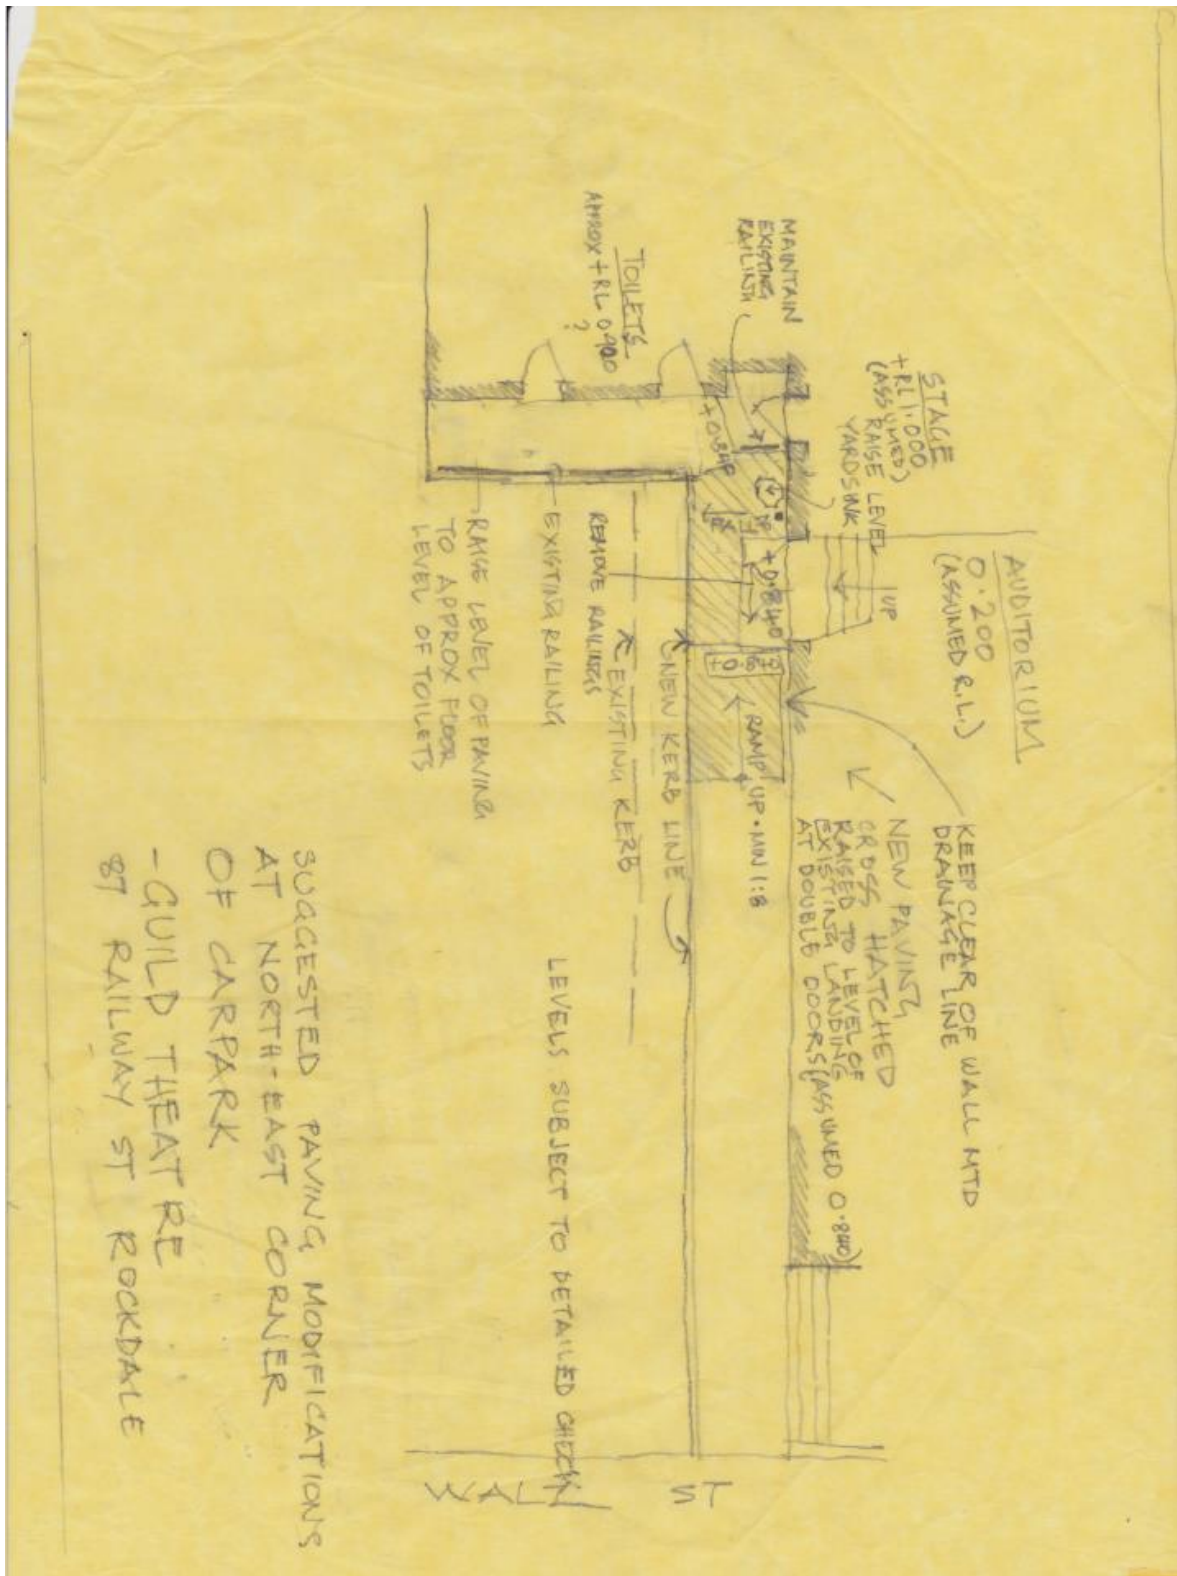 STAGE
+RL 1.000
(ASSUMED)
RAISE LEVEL
YARD SINK
MAINTAIN
EXISTING
RAILING
TOILETS
APPROX +RL 0.900
?
AUDITORIUM
0.200
(ASSUMED R.L.)
UP
+0.840
+0.840
KEEP CLEAR OF WALL MTD
DRAINAGE LINE
NEW PAVING
CROSS HATCHED
RAISED TO LEVEL OF
EXISTING LANDING
AT DOUBLE DOORS (ASSUMED 0.840)
RAMP UP • MIN 1:8
NEW KERB LINE
EXISTING KERB
REMOVE RAILINGS
EXISTING RAILING
RAISE LEVEL OF PAVING
TO APPROX FLOOR
LEVEL OF TOILETS
LEVELS SUBJECT TO DETAILED CHECK
WALZ ST
SUGGESTED PAVING MODIFICATIONS
AT NORTH-EAST CORNER
OF CARPARK
- GUILD THEATRE
87 RAILWAY ST ROCKDALE